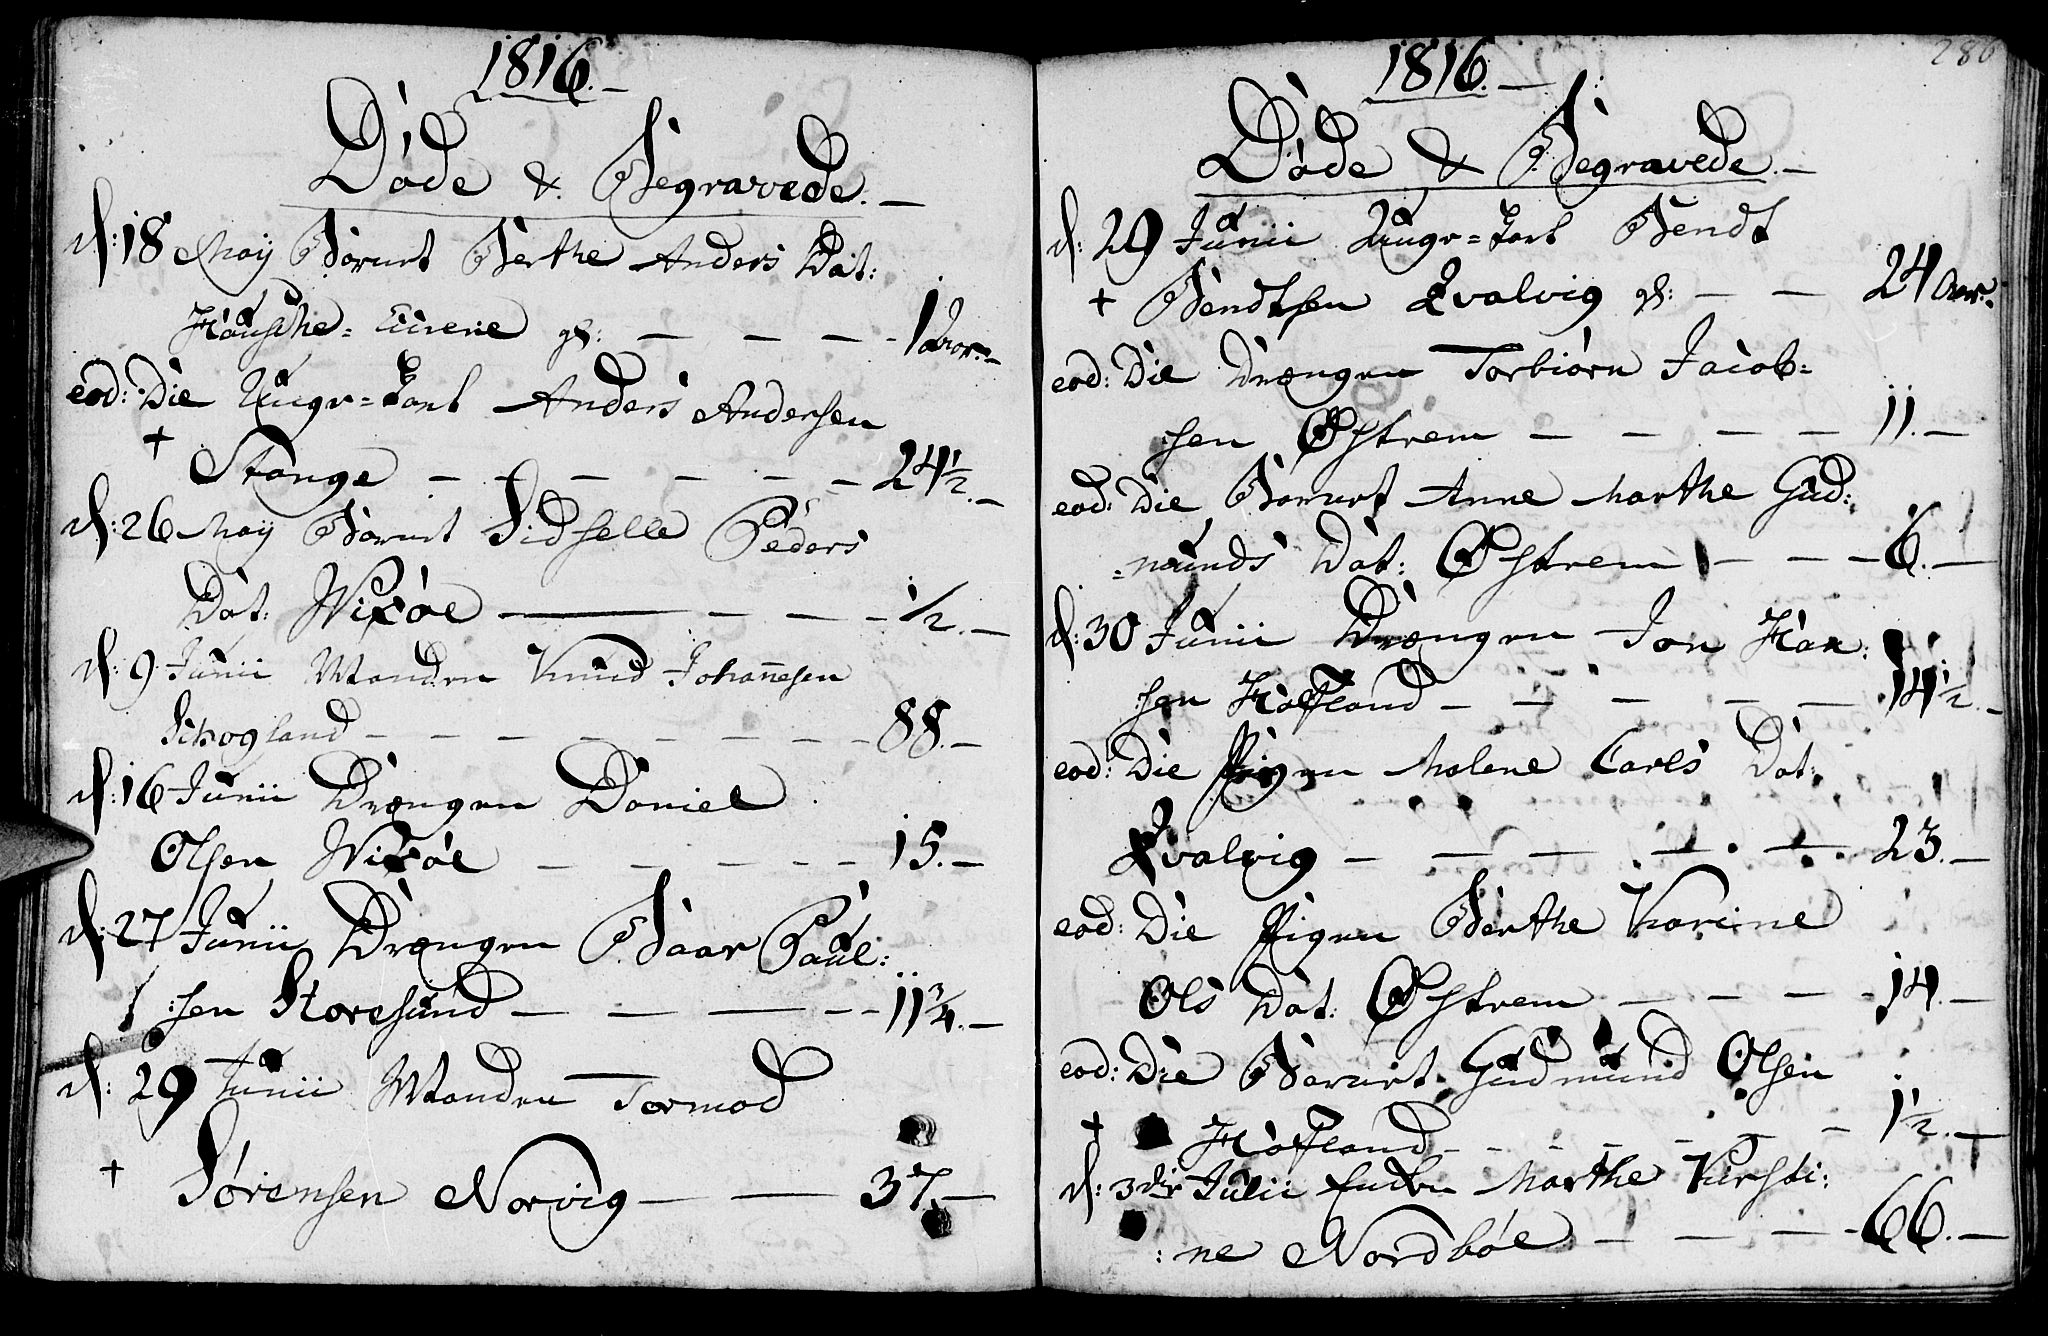 1816.
Døde & Begravede.
d: 18 Maij Barnet Berthe Anders Dat:
gl: 1 Aar.
eod: Die Unge-Karl Anders Andersen
+ Stange 24 1/2.
d: 26 Maij Barnet Sidselle Peders
Dat: Wixøe 1/2.
d: 9 Junii Manden Knud Johannesen
Schogland 88.
d: 16 Junii Drængen Daniel
Olsen Wixøe 15.
d: 27 Junii Drængen Baar Paul:
:sen Storesund 11 3/4.
d: 29 Junii Manden Tormod
+ Sørensen Norvig 37.
1816.
286
Døde & Begravede.
d: 29 Junii Unge-Karl Bendt
+ Bendtsen Qvalvig gl: 24 Aar.
eod: Die Drængen Torbiørn Jacob=
:sen Østrem 11.
eod: Die Barnet Anne Marthe Gud:
=munds Dat: Østrem 6.
d: 30 Junii Drængen Jon Han:
:sen Hafland 14 1/2.
eod: Die Pigen Malene Carls Dat:
Qvalvig 23.
eod: Die Pigen Berthe Karine
Ols Dat: Østrem 14.
eod: Die Barnet Gudmund Olsen
+ Hafland 1 1/2.
d: 3die Julii Enken Marthe Kirsti:
:ne Nordbøe 66.